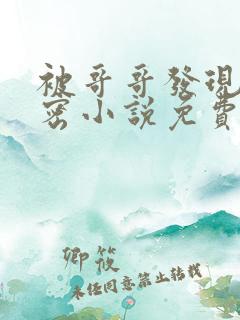 被哥哥發現
密小說免費
卿筱
未经同意禁止转载